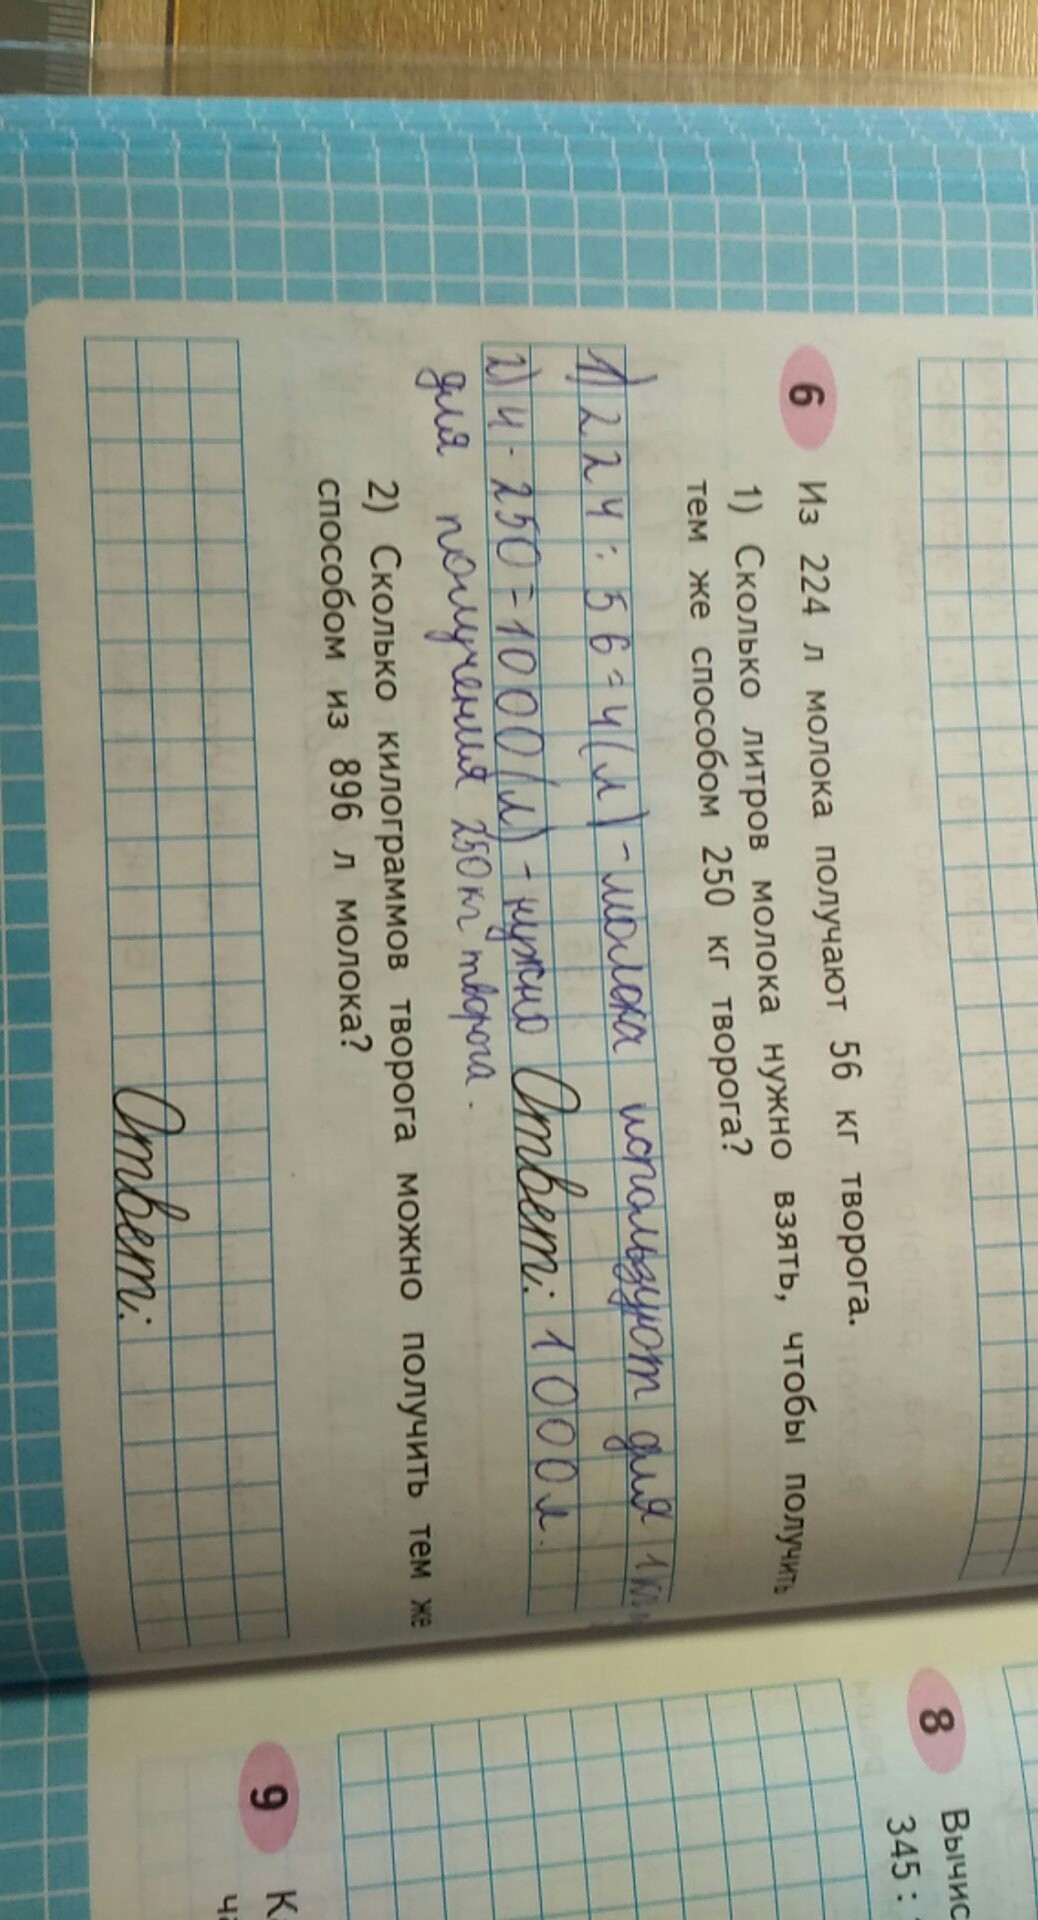 6 Из 224 л молока получают 56 кг творога.
1) Сколько литров молока нужно взять, чтобы получить
тем же способом 250 кг творога?
1) 224 : 56 = 4 (л) - молока используют для 1 кг
2) 4 · 250 = 1000 (л) - нужно Ответ: 1000 л.
для получения 250 кг творога.
2) Сколько килограммов творога можно получить тем же
способом из 896 л молока?
Ответ:
8 Вычис
345 :
9